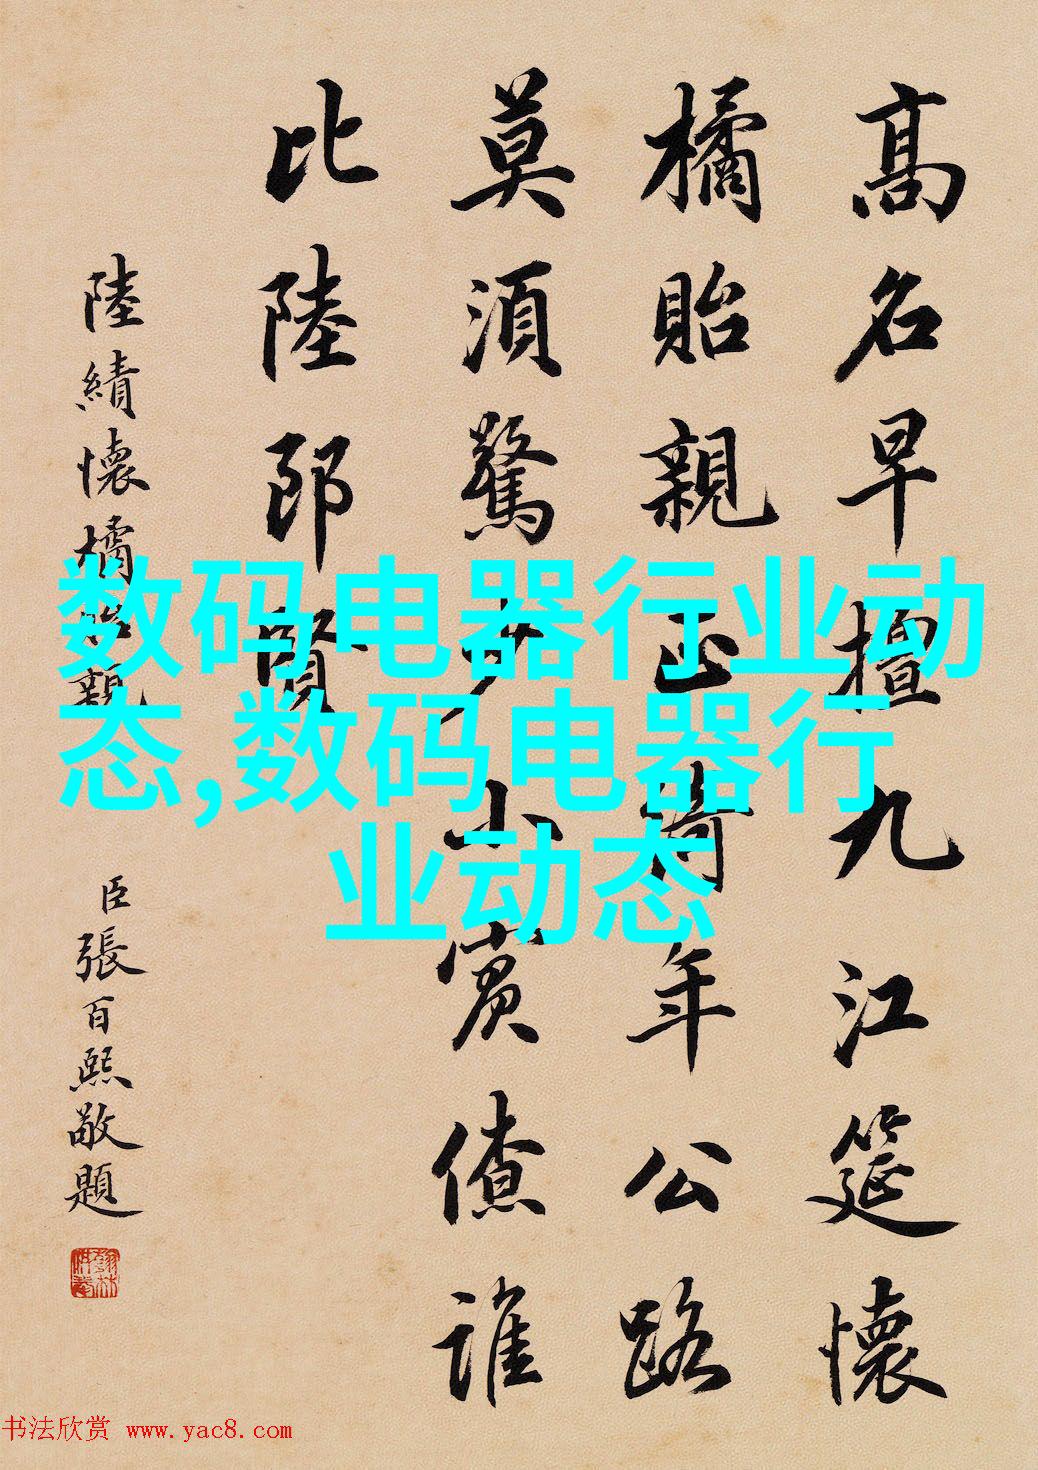 高名早擅九江筵懷
橘貽親正年公路
莫須驚少小賓僚誰
比陸郎賢
陸績懷橘貽親
臣張百熙敬題
数码电器行业动
态,数码电器行
业动态
书法欣赏 www.yac8.com